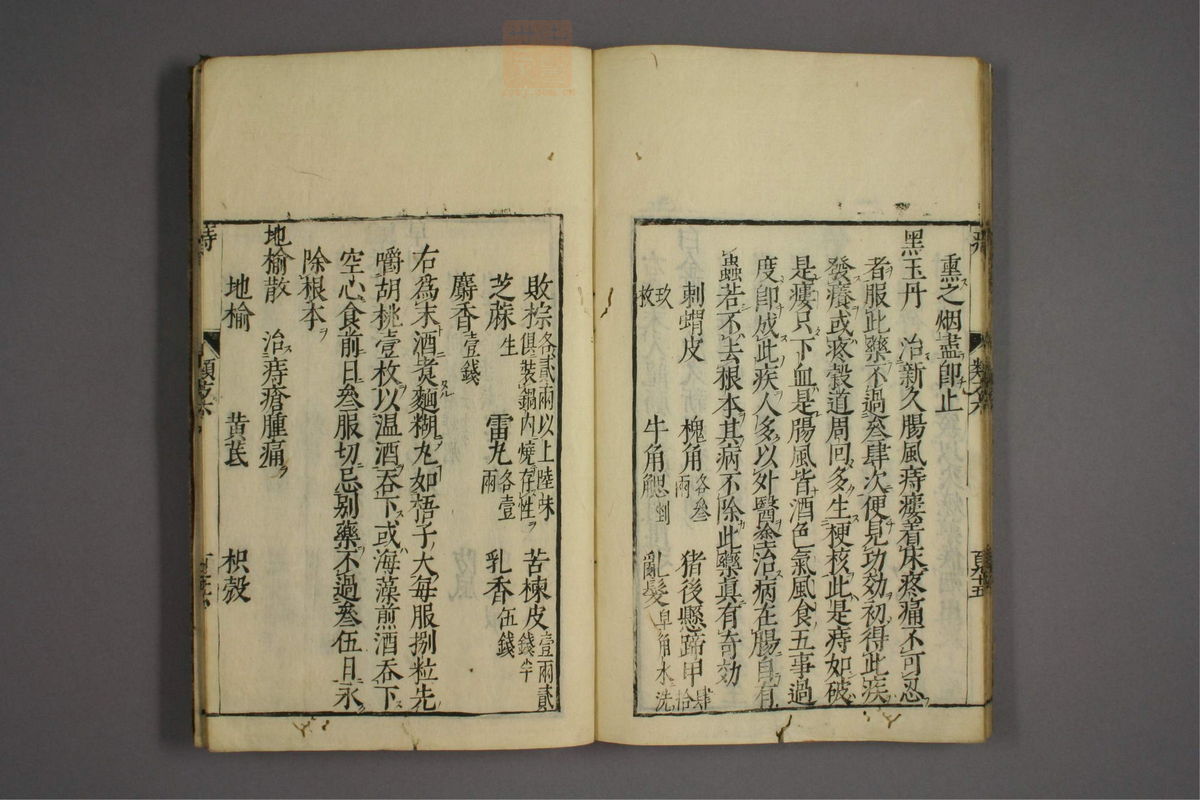 熏之烟盡即止
黑玉丹 治新久腸風痔瘻着床疼痛不可忍
者服此藥不過叄肆次便見功効初得此疾
發癢或疼穀道周回多生梗核此是痔如破
是瘻只下血是腸風皆酒色氣風食五事過
度即成此疾人多以外醫塗去治病在腸自有
蟲若不去根本其病不除此藥真有奇効
刺蝟皮 槐角各叄兩 猪後懸蹄甲肆拾
玖枚 牛角䚡剉 亂髮皁角水洗
敗椶各貳兩以上陸味俱裝鍋内燒存性 苦楝皮壹兩貳錢半
芝蔴生 雷丸各壹兩 乳香伍錢
麝香壹錢
右爲末酒煑麵糊丸如梧子大每服捌粒先
嚼胡桃壹枚以温酒吞下或海藻煎酒吞下
空心食前日叄服切忌别藥不過叄伍日永
除根本
地榆散 治痔瘡腫痛
地榆 黄芪 枳殼